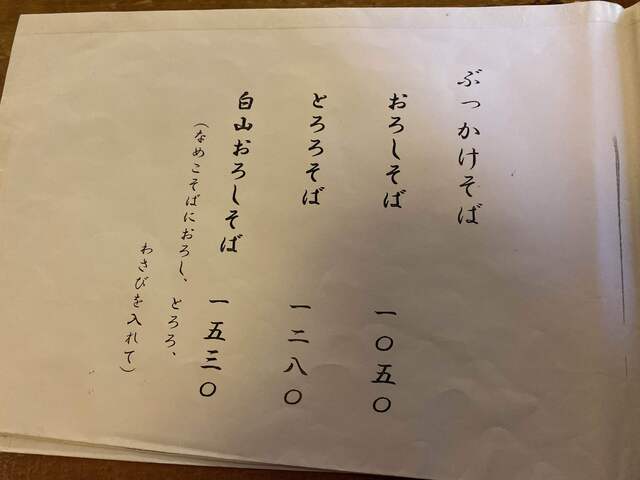 ぶっかけそば
おろしそば 一〇五〇
とろろそば 一二八〇
白山おろしそば 一五三〇
(なめこそばにおろし、とろろ、
わさびを入れて)